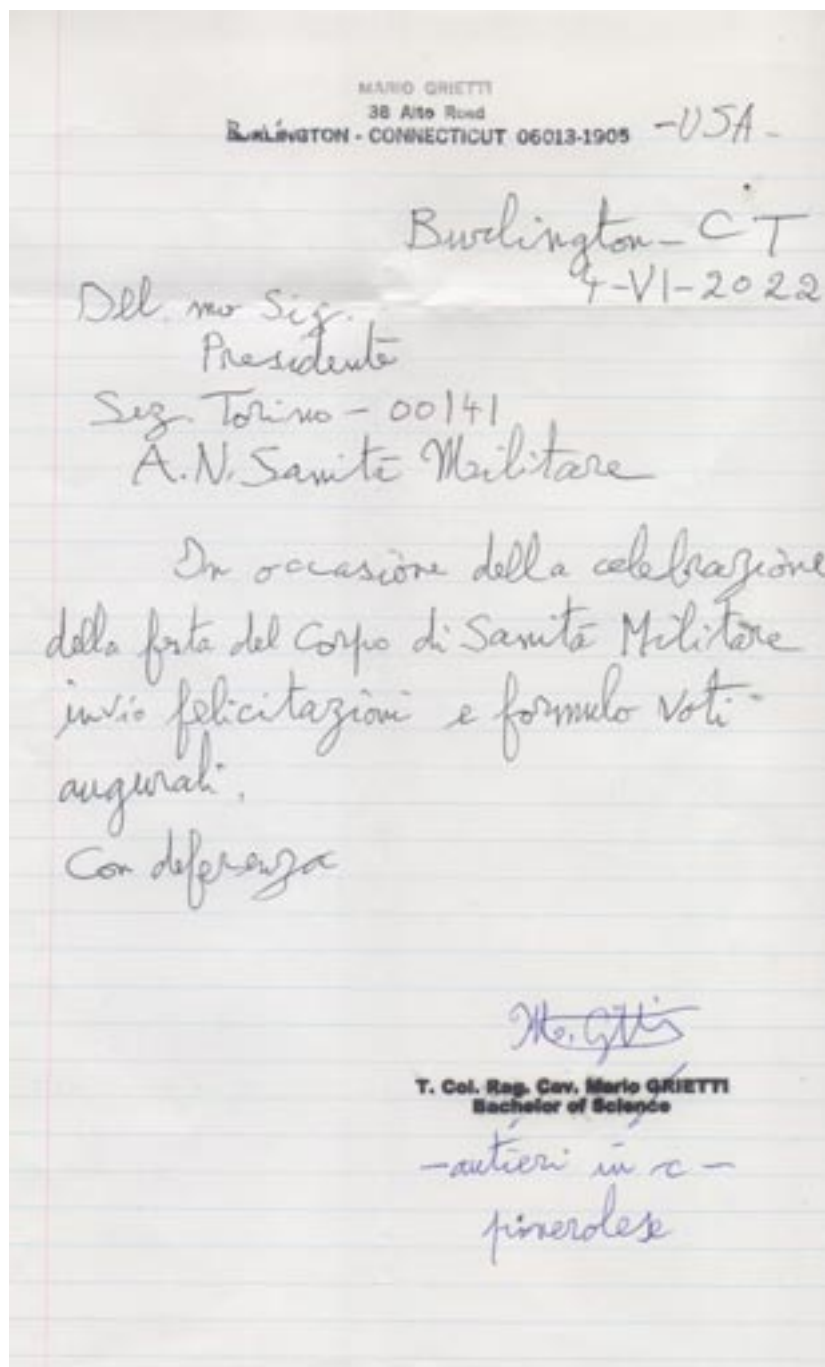 MARIO GRIETTI
38 Alto Road
BURLINGTON - CONNECTICUT 06013-1905 -USA-
Burlington - CT
4-VI-2022
Ill.mo Sig.
Presidente
Sez. Torino - 00141
A.N. Sanità Militare
In occasione della celebrazione
della festa del Corpo di Sanità Militare
invio felicitazioni e formulo voti
augurali.
Con deferenza
T. Col. Rag. Cav. Mario GRIETTI
Bachelor of Science
-autieri in c-
pinerolese